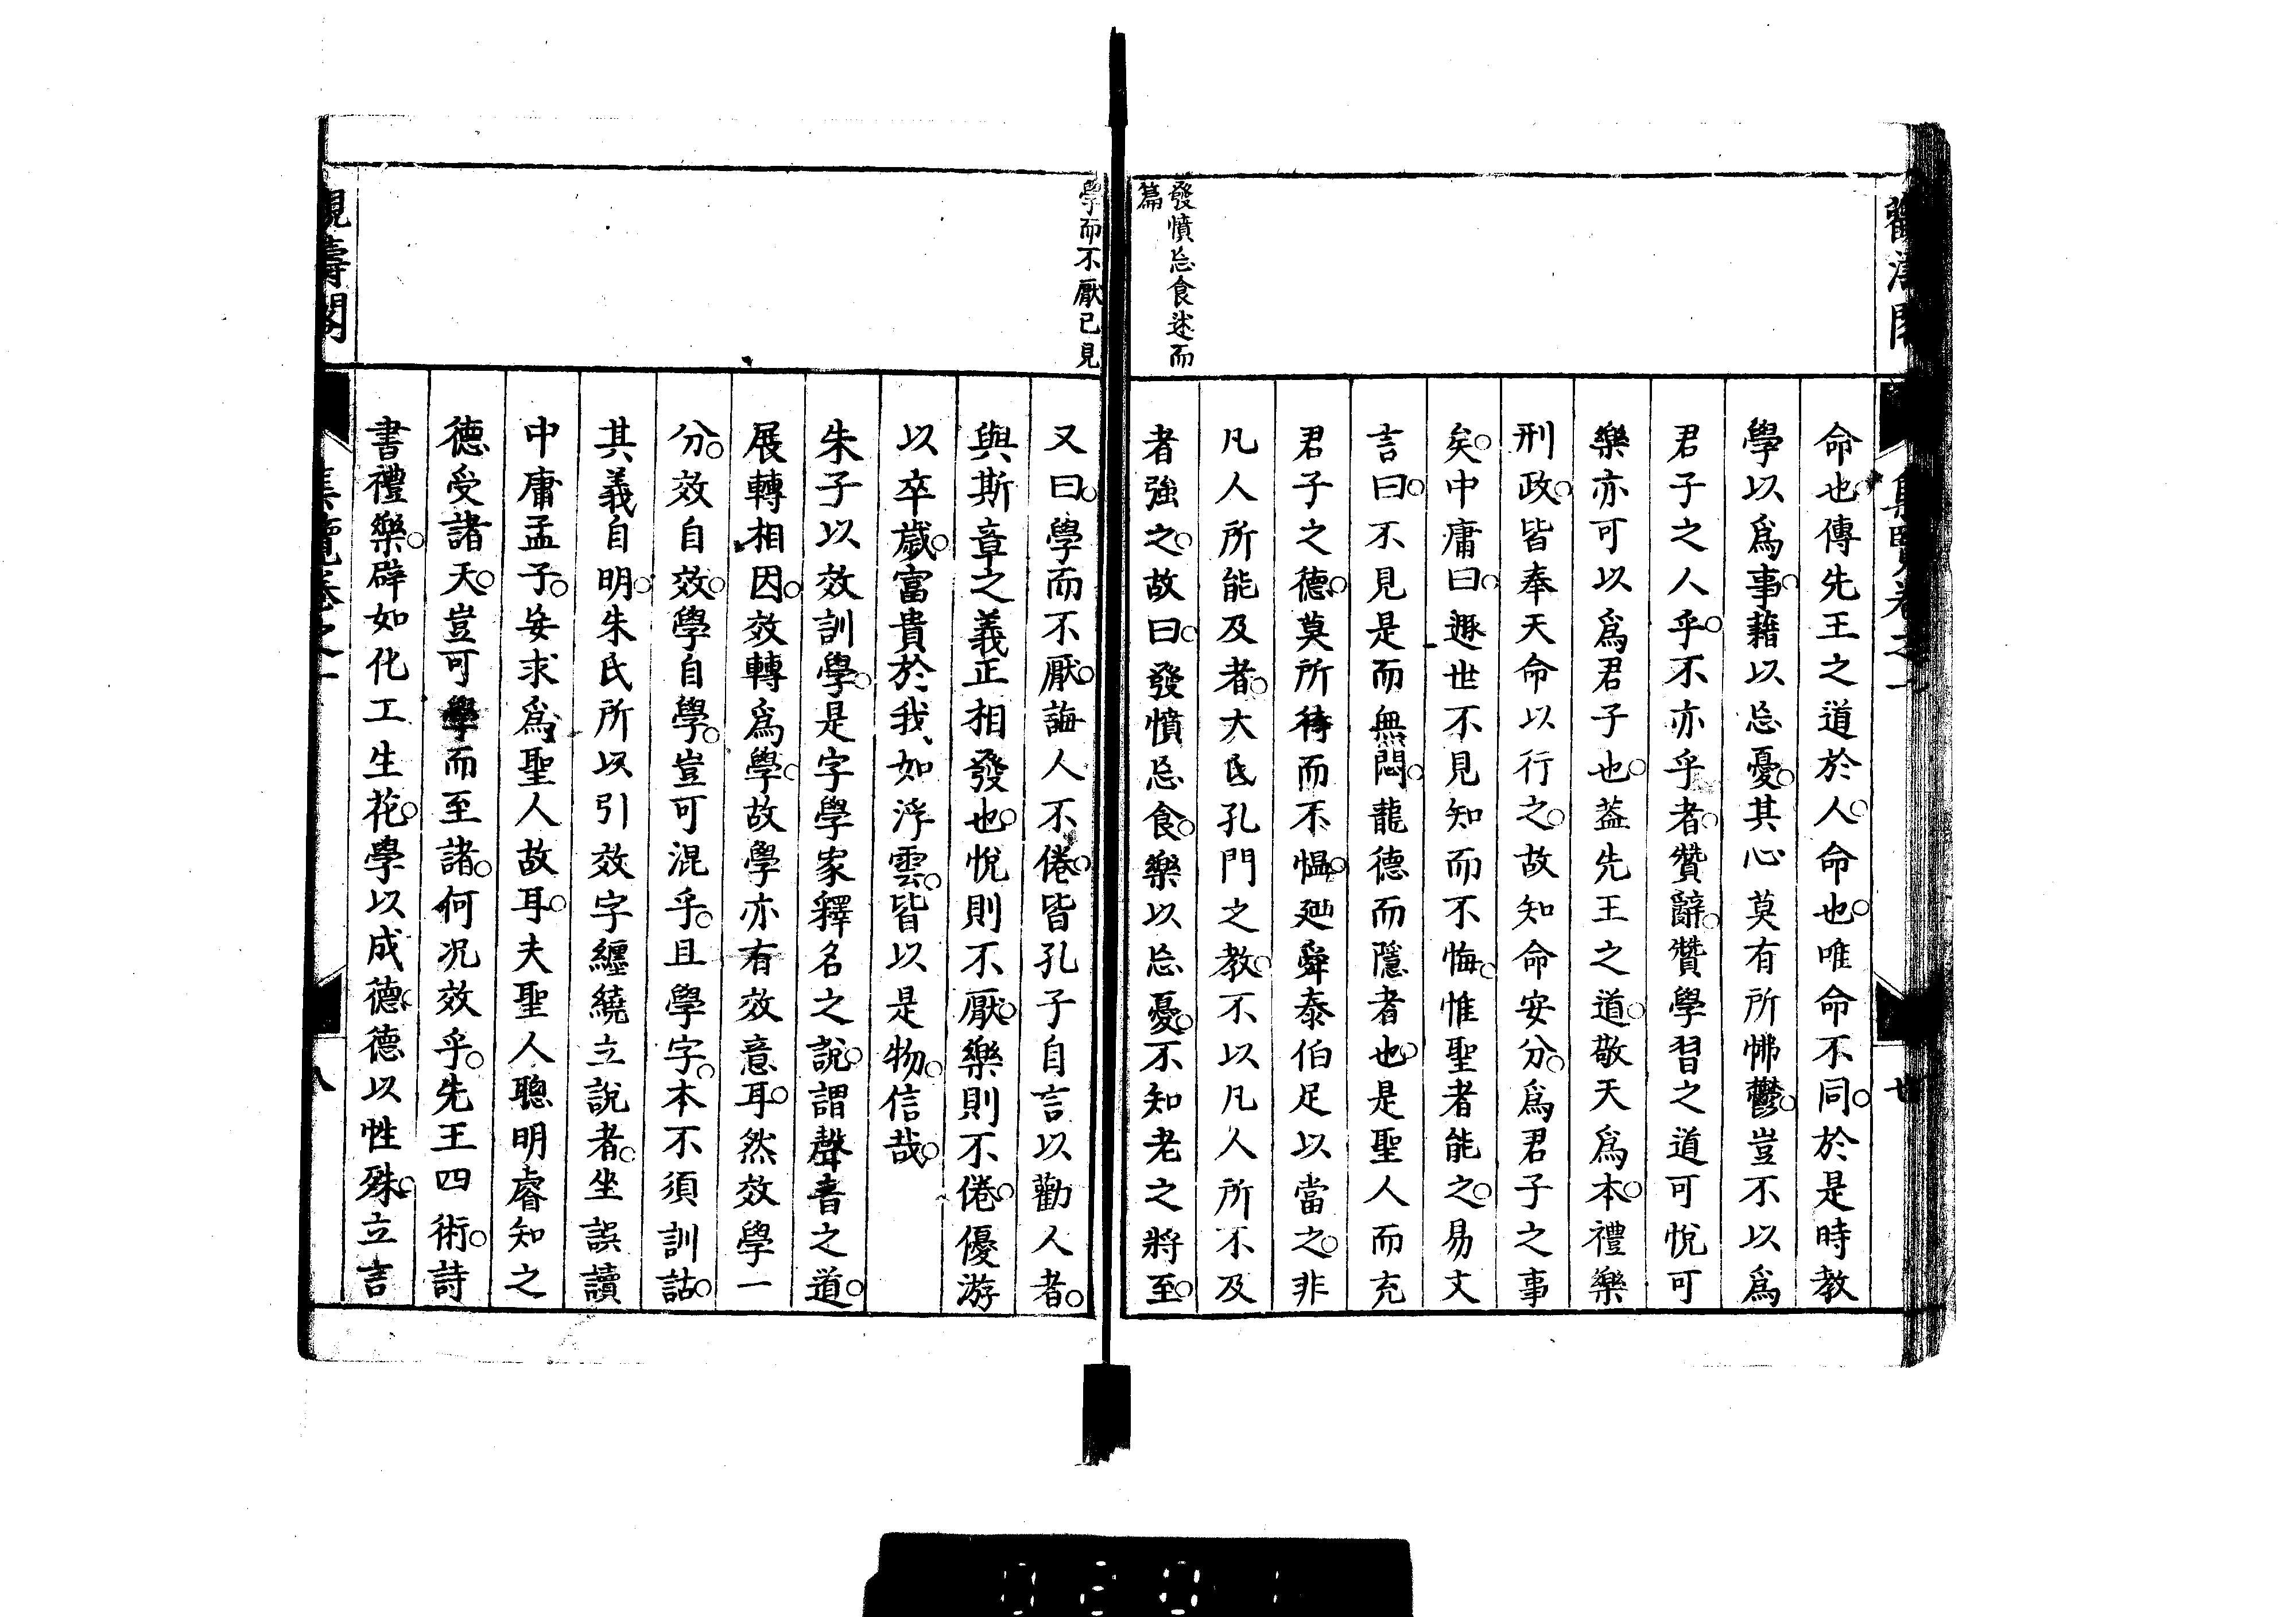 命也。傳先王之道於人。命也。唯命不同。於是時教
學以爲事。藉以忘憂。其心莫有所怫鬱。豈不以爲
君子之人乎。不亦乎者。贊辭。贊學習之道可悅可
樂亦可以爲君子也。蓋先王之道。敬天爲本。禮樂
刑政。皆奉天命以行之。故知命安分。爲君子之事
矣。中庸曰。遯世不見知而不悔。惟聖者能之。易文
言曰。不見是而無悶。龍德而隱者也。是聖人而充
君子之德。莫所待而不慍。廼舜泰伯足以當之。非
凡人所能及者。大氐孔門之教。不以凡人所不及
者強之。故曰。發憤忘食。樂以忘憂。不知老之將至。
發憤忘食述而
篇
又曰。學而不厭。誨人不倦。皆孔子自言以勸人者。
與斯章之義正相發也。悅則不厭。樂則不倦。優游
以卒歲。富貴於我、如浮雲。皆以是物。信哉。
朱子以效訓學。是字學家釋名之說。謂聲音之道。
展轉相因。效轉爲學。故學亦有效意耳。然效學一
分。效自效。學自學。豈可混乎。且學字。本不須訓詁。
其義自明。朱氏所以引效字纏繞立說者。坐誤讀
中庸孟子。妄求爲聖人故耳。夫聖人聰明睿知之
德受諸天。豈可學而至諸。何況效乎。先王四術。詩
書禮樂。辟如化工生花。學以成德。德以性殊。立言
學而不厭已見
覩濤閣
集覽卷之一
八